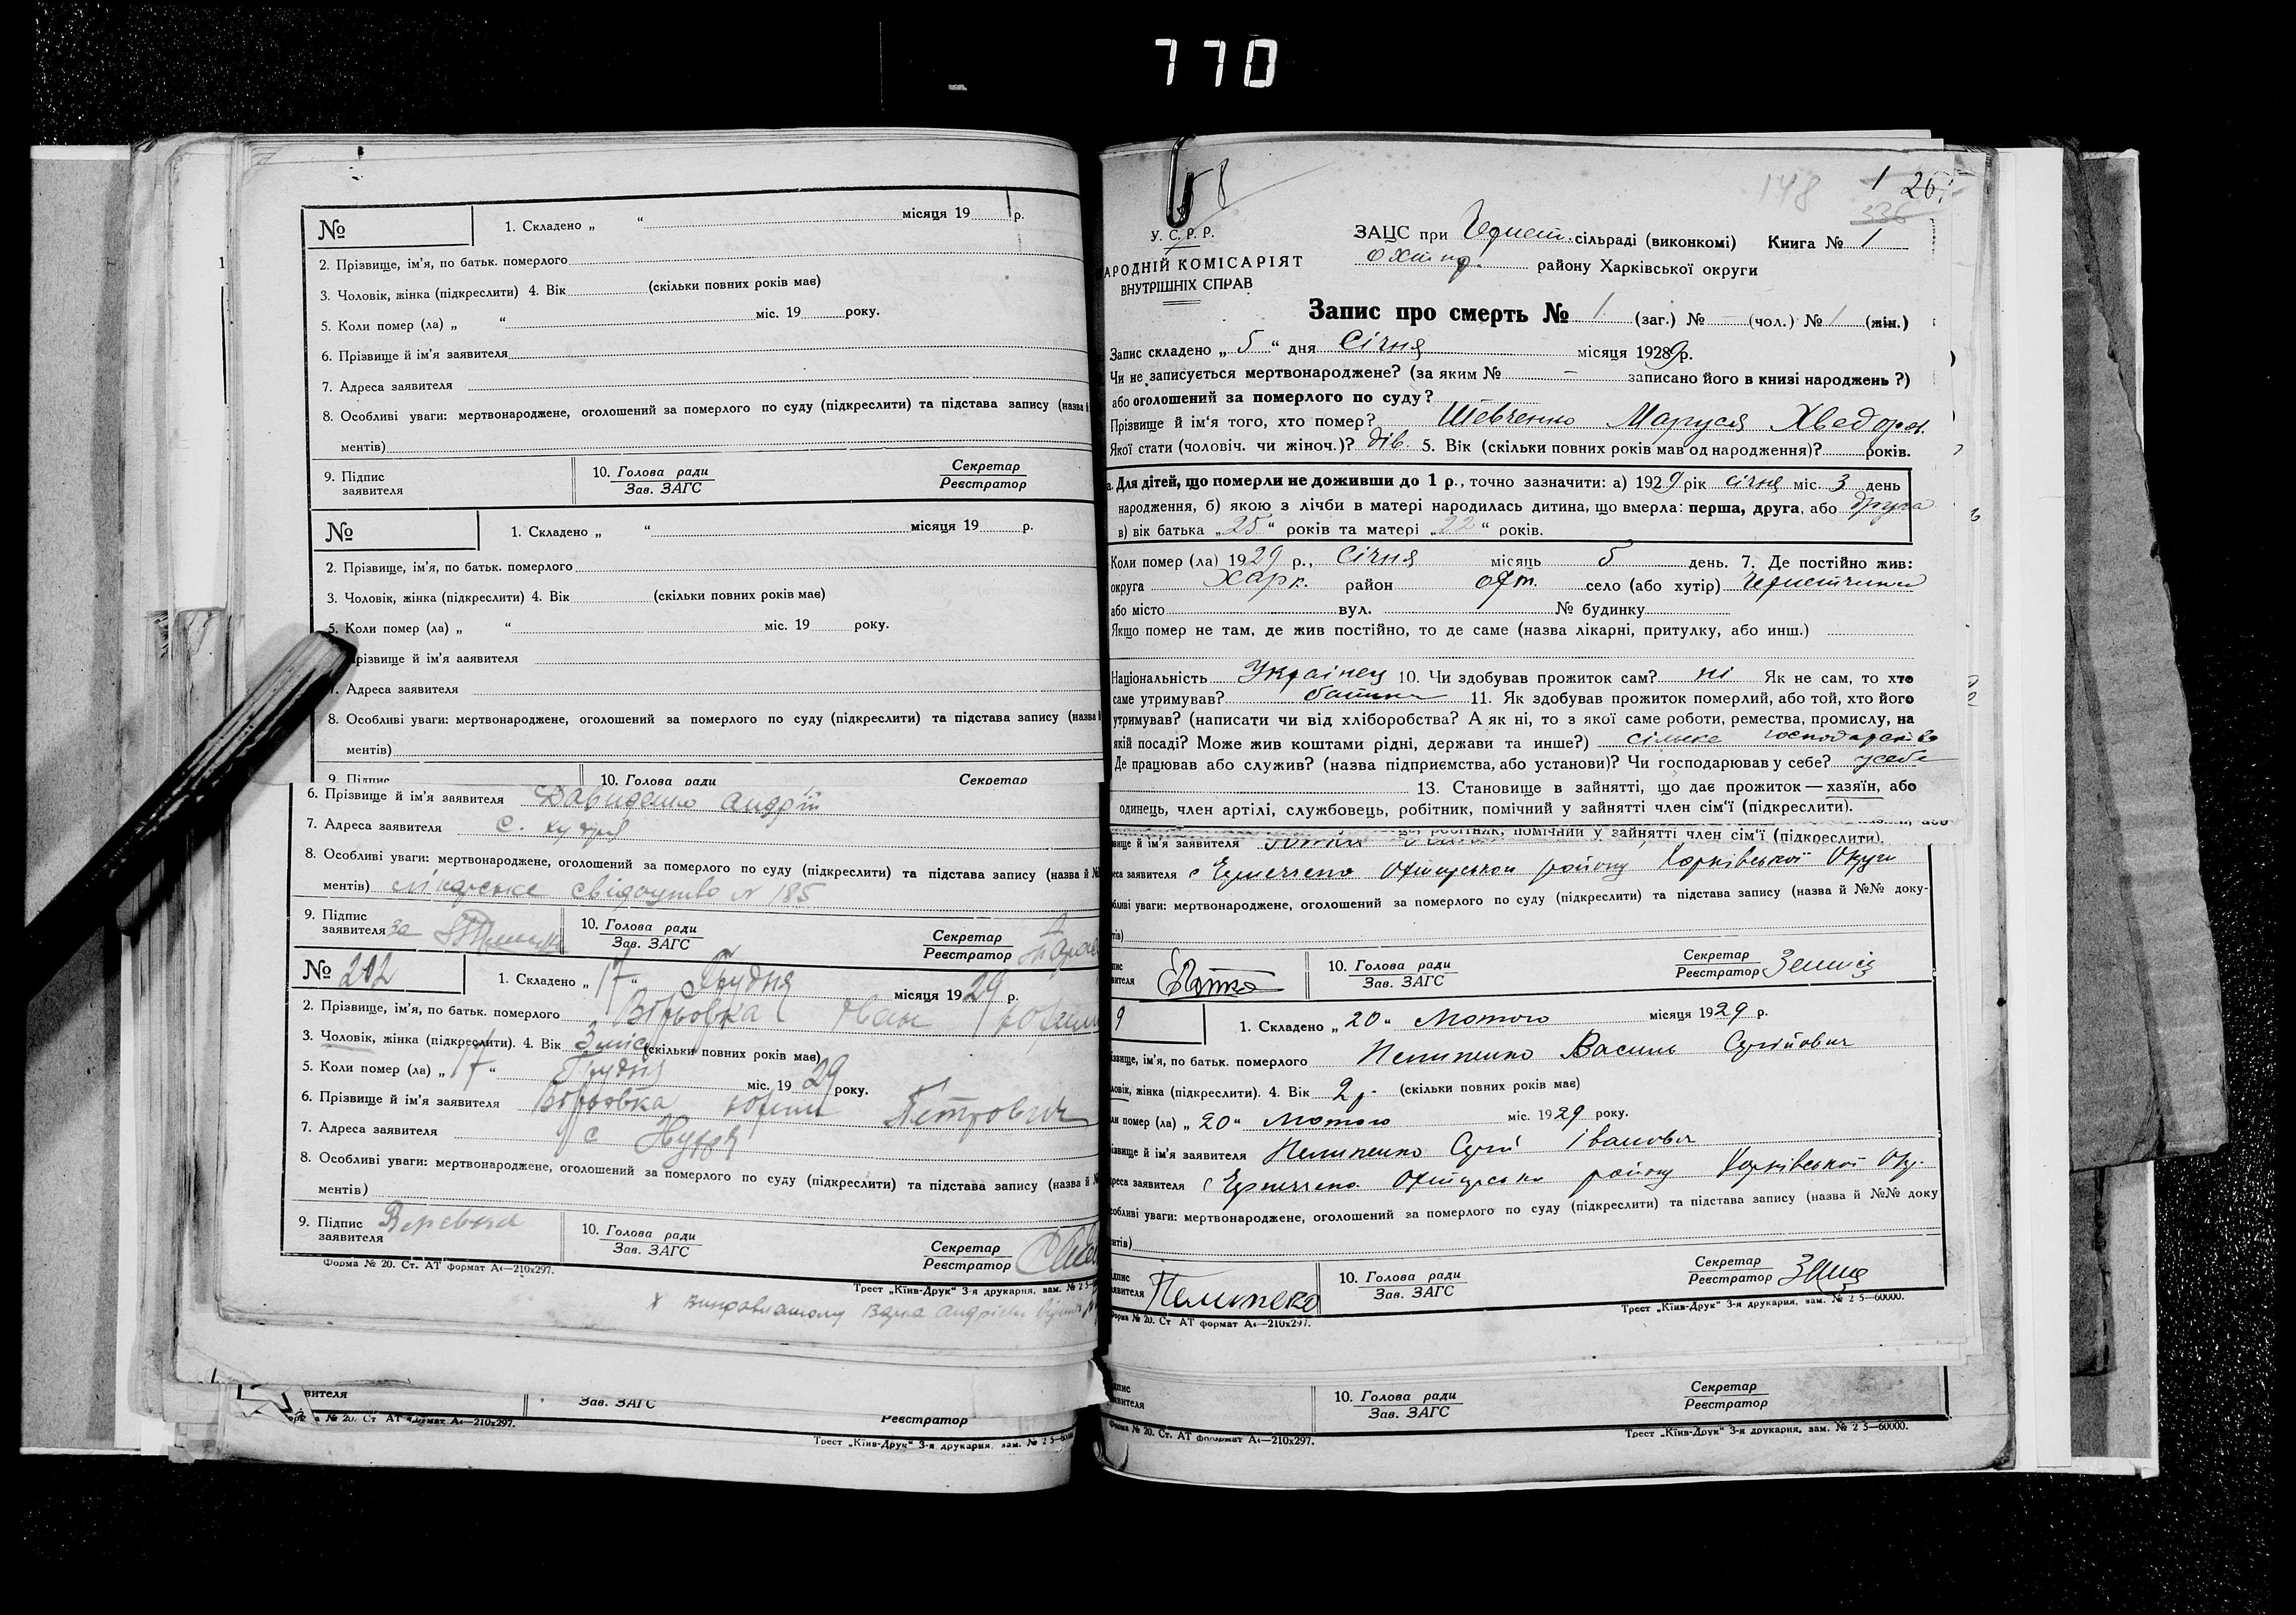 770
№
1. Складено „ “ місяця 19 р.
2. Прізвище, ім'я, по батьк. померлого
3. Чоловік, жінка (підкреслити) 4. Вік (скільки повних років має)
5. Коли помер (ла) „ “ міс. 19 року.
6. Прізвище й ім'я заявителя
7. Адреса заявителя
8. Особливі уваги: мертвонароджене, оголошений за померлого по суду (підкреслити) та підстава запису (назва
ментів)
9. Підпис заявителя
10. Голова ради Зав. ЗАГС
Секретар Реєстратор
№
1. Складено „ “ місяця 19 р.
2. Прізвище, ім'я, по батьк. померлого
3. Чоловік, жінка (підкреслити) 4. Вік (скільки повних років має)
5. Коли помер (ла) „ “ міс. 19 року.
різвище й ім'я аявителя
Адреса заявителя
8. Особливі уваги: мертвонароджене, оголошений за померлого по суду (підкреслити) та підстава запису (назва
ментів)
9. Підпис 10. Голова ради Секретар
6. Прізвище й ім'я заявителя Давиденко Андрій
7. Адреса заявителя с.
8. Особливі уваги: мертвонароджене, оголошений за померлого по суду (підкреслити) та підстава запису (назва й
ментів) лікарське свідоцтво N 185
9. Підпис заявителя за
10. Голова ради Зав. ЗАГС
Секретар Реєстратор
№ 202
1. Складено „17“ Грудня місяця 1929 р.
2. Прізвище, ім'я, по батьк. померлого Вірьовка Іван
3. Чоловік, жінка (підкреслити). 4. Вік 3 міс (скільки повних років має)
5. Коли помер (ла) „17“ Грудня міс. 1929 року.
6. Прізвище й ім'я заявителя Вірьовка Юхим Петрович
7. Адреса заявителя с
8. Особливі уваги: мертвонароджене, оголошений за померлого по суду (підкреслити) та підстава запису (назва й
ментів)
9. Підпис заявителя
10. Голова ради Зав. ЗАГС
Секретар Реєстратор
Форма № 20. Ст. АТ формат А4—210х297.
Трест „Київ-Друк“ 3-я друкарня, зам. № 2 5
вителя
Зав. ЗАГС
Реєстратор
№ 20. Ст АТ формат А4—210х297.
Трест „Київ-Друк“ 3-я друкарня, зам. № 2 5—60
148 1 26
336
У. С. Р. Р.
АРОДНІЙ КОМІСАРІЯТ
ВНУТРІШНІХ СПРАВ
ЗАЦС при сільраді (виконкомі) Книга № 1
району Харківської округи
Запис про смерть № 1 (заг.) № – (чол.) № 1 (жін.)
Запис складено „5“ дня Січня місяця 1929р.
Чи не записується мертвонароджене? (за яким № – записано його в книзі народжень?)
або оголошений за померлого по суду?
Прізвище й ім'я того, хто помер? Шевченко Маруся Хведоров.
Якої стати (чоловіч. чи жіноч.)? дів. 5. Вік (скільки повних років мав од народження)? років.
а. Для дітей, що померли не доживши до 1 р., точно зазначити: а) 1929 рік січня міс. 3 день
народження, б) якою з лічби в матері народилась дитина, що вмерла: перша, друга, або друга
в) вік батька „25“ років та матері „22“ років.
Коли помер (ла) 1929 р., Січня місяць 5 день. 7. Де постійно жив:
округа Харк. район охт. село (або хутір)
або місто вул. № будинку
Якщо помер не там, де жив постійно, то де саме (назва лікарні, притулку, або инш.)
Національність Українец 10. Чи здобував прожиток сам? ні Як не сам, то хто
саме утримував? батько 11. Як здобував прожиток померлий, або той, хто його
утримував? (написати чи від хліборобства? А як ні, то з якої саме роботи, ремества, промислу, на
якій посаді? Може жив коштами рідні, держави та инше?) сільске господарство
Де працював або служив? (назва підприємства, або установи)? Чи господарював у себе? у себе
13. Становище в зайнятті, що дає прожиток — хазяїн, або
одинець, член артілі, службовець, робітник, помічний у зайнятті член сім'ї (підкреслити).
робітник, помічний у зайнятті член сім'ї (підкреслити).
вище й ім'я заявителя
реса заявителя с Охтирської району Харківської Округи
бливі уваги: мертвонароджене, оголошений за померлого по суду (підкреслити) та підстава запису (назва й №№ доку-
тів)
пис вителя
10. Голова ради Зав. ЗАГС
Секретар Реєстратор
9
1. Складено „20“ Лютого місяця 1929 р.
ізвище, ім'я, по батьк. померлого Пелипенко Василь Сергійович
ловік, жінка (підкреслити). 4. Вік 2 р. (скільки повних років має)
ли помер (ла) „20“ Лютого міс. 1929 року.
ізвище й ім'я заявителя Пелипенко Сергій Іванович
реса заявителя с району Харківської Окр.
собливі уваги: мертвонароджене, оголошений за померлого по суду (підкреслити) та підстава запису (назва й №№ доку
ентів)
дпис аявителя Пелипенко
10. Голова ради Зав. ЗАГС
Секретар Реєстратор
Форма № 20. Ст АТ формат А4—210х297.
Трест „Київ-Друк“ 3-я друкарня, зам. № 2 5—60000.
дпис аявителя
10. Голова ради Зав. ЗАГС
Секретар Реєстратор
Форма № 20. Ст. АТ формат А4—210х297.
Трест „Київ-Друк“ 3-я друкарня, зам. № 2 5—60000.